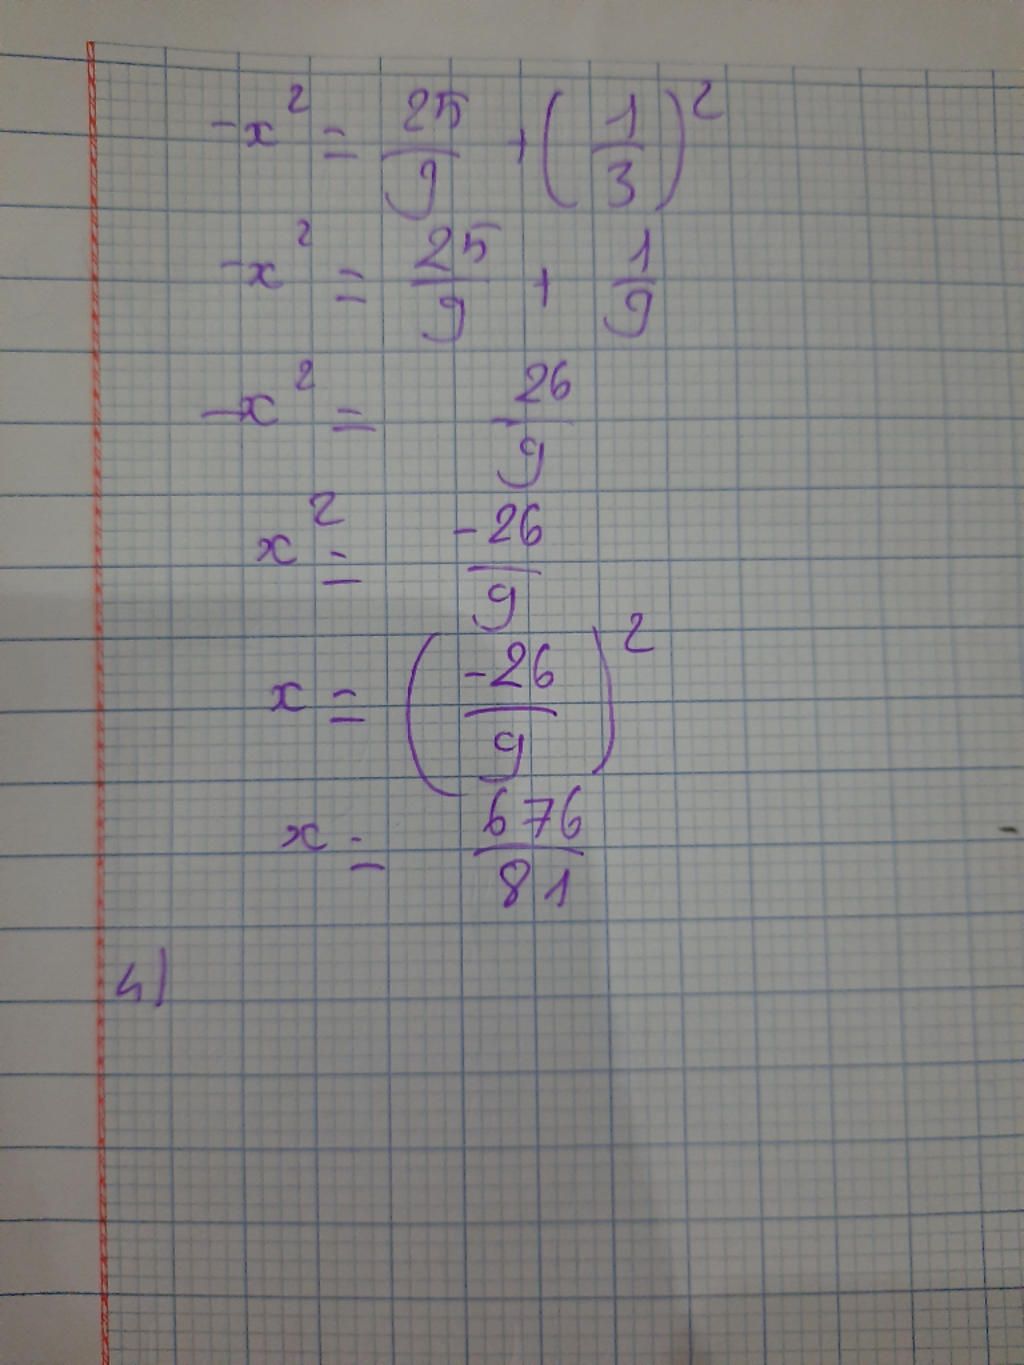 -x² = 25/9 + (1/3)²
-x² = 25/9 + 1/9
-x² = 26/9
x² = -26/9
x = (-26/9)²
x = 676/81
4)